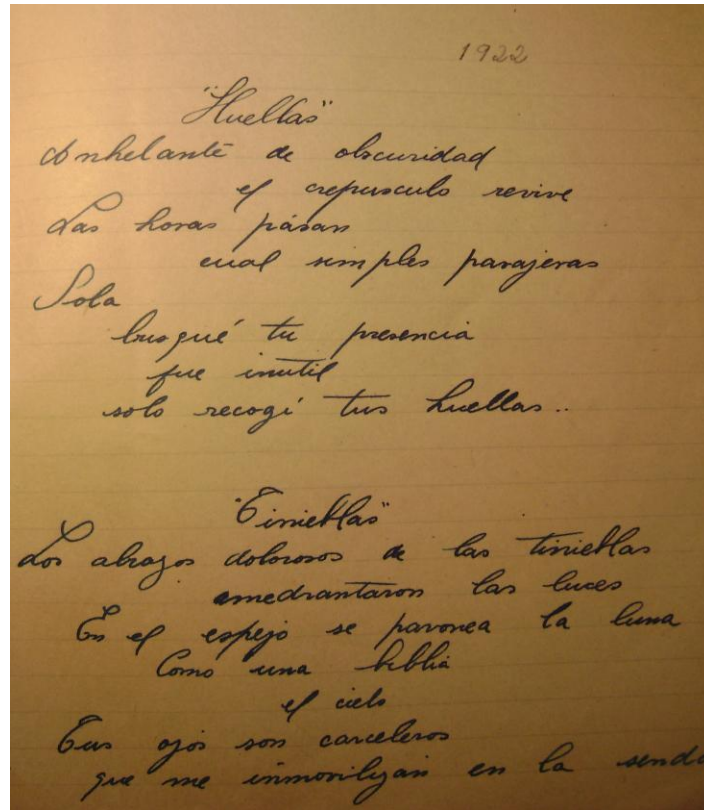 1922
"Huellas"
Anhelante de obscuridad
el crepusculo revive
Las horas pasan
cual simples pasajeras
Sola
busqué tu presencia
fue inutil
solo recogí tus huellas..
"Tinieblas"
Los abrazos dolorosos de las tinieblas
amedrantaron las luces
En el espejo se pavonea la luna
Como una biblia
el cielo
Tus ojos son carceleros
que me inmovilizan en la senda